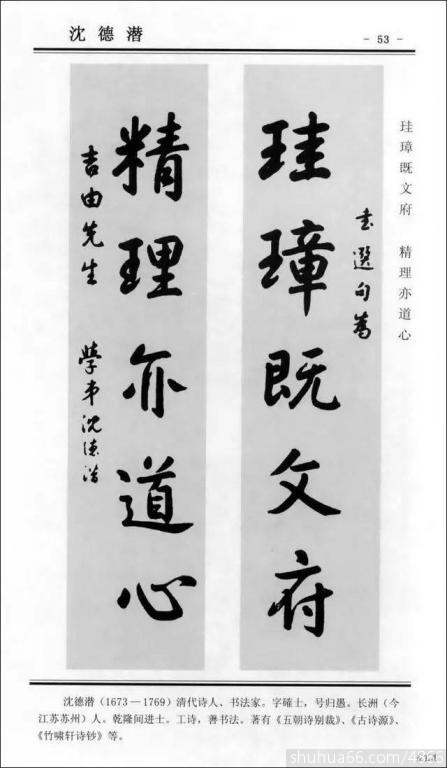 沈德潜
- 53 -
珪璋既文府 精理亦道心
书选句为
珪璋既文府
精理亦道心
吉由先生 学弟沈德潜
沈德潜(1673—1769)清代诗人、书法家。字確士,号归愚。长洲(今
江苏苏州)人。乾隆间进士。工诗,善书法。著有《五朝诗别裁》、《古诗源》、
《竹啸轩诗钞》等。
shuhua66.com